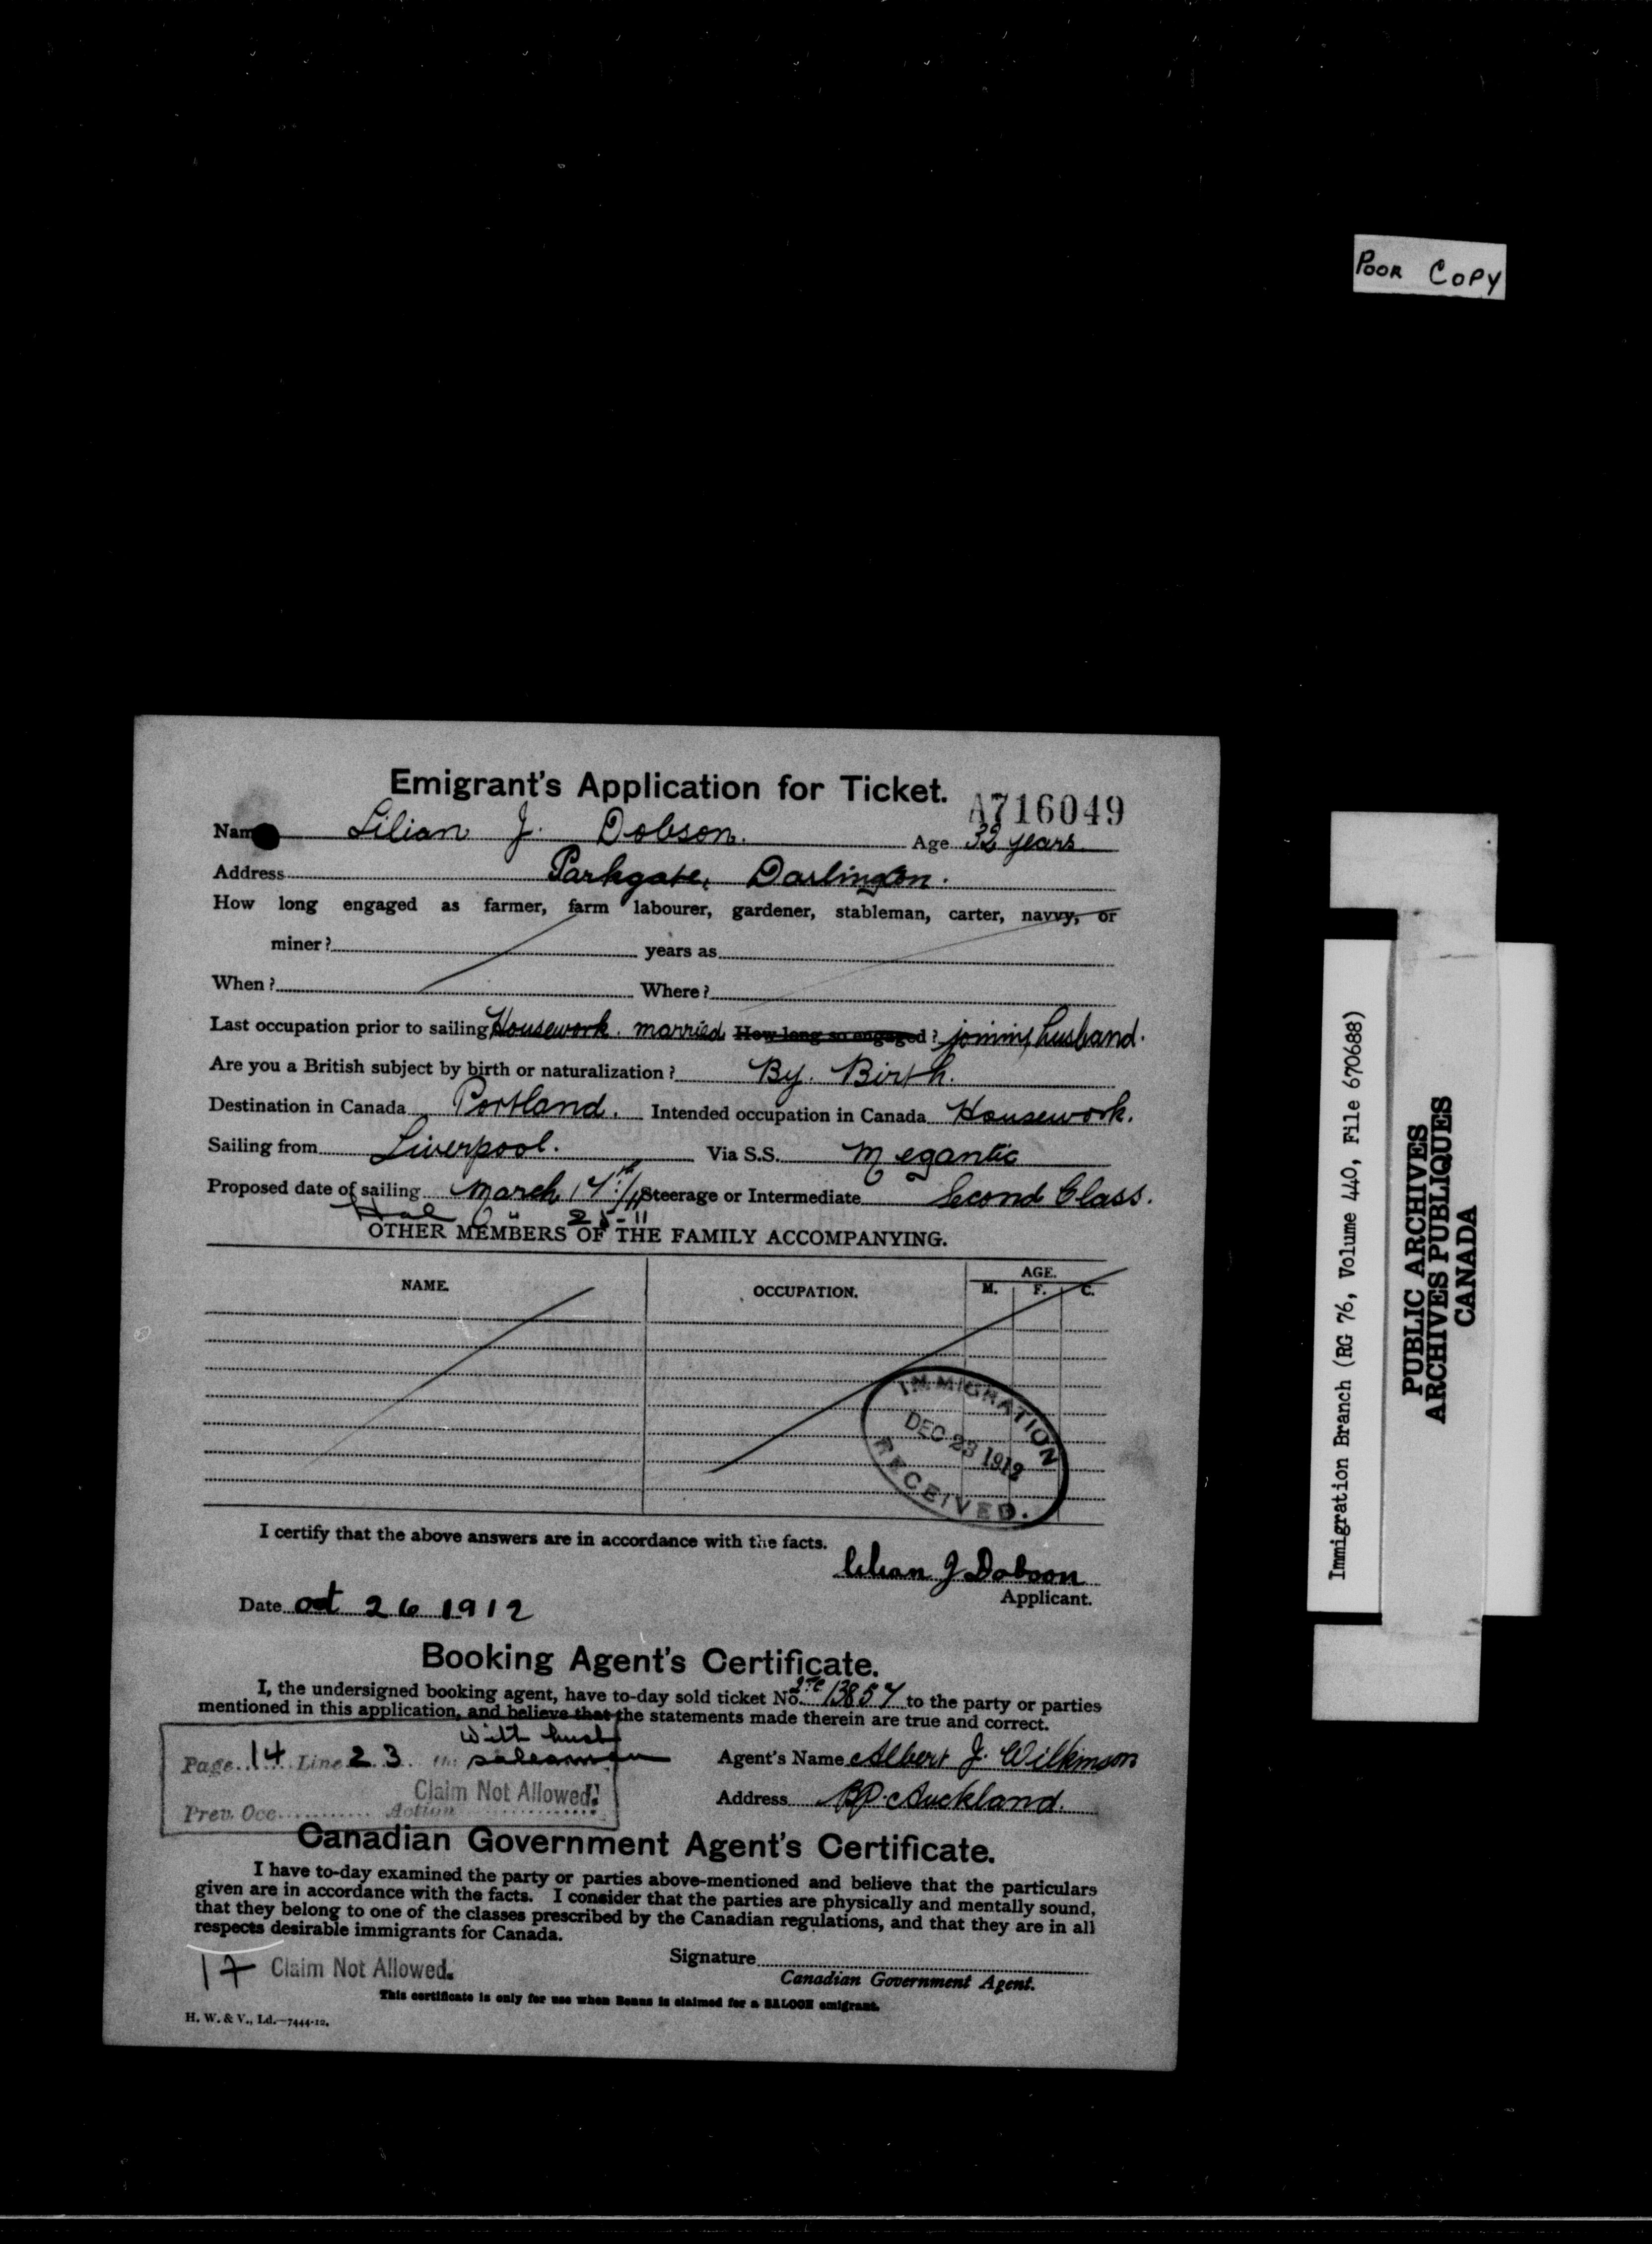 POOR COPY
Emigrant's Application for Ticket.
A716049
Name Lilian J. Dobson. Age 32 years
Address Parkgate, Darlington.
How long engaged as farmer, farm labourer, gardener, stableman, carter, navvy, or
miner? years as
When? Where?
Last occupation prior to sailing Housework. married How long so engaged? joining husband.
Are you a British subject by birth or naturalization? By. Birth.
Destination in Canada Portland. Intended occupation in Canada Housework.
Sailing from Liverpool. Via S.S. Megantic
Proposed date of sailing March 14th/11 Steerage or Intermediate Second Class.
Hal 25-11
OTHER MEMBERS OF THE FAMILY ACCOMPANYING.
NAME. OCCUPATION. AGE.
M. F. C.
IMMIGRATION
DEC 23 1912
RECEIVED.
I certify that the above answers are in accordance with the facts.
Lilian J Dobson
Applicant.
Date Oct 26 1912
Booking Agent's Certificate.
I, the undersigned booking agent, have to-day sold ticket No. 13857 to the party or parties
mentioned in this application, and believe that the statements made therein are true and correct.
With husb
Page 14 Line 23 salesman
Agent's Name Albert J. Wilkinson
Claim Not Allowed.
Prev. Occ. Action
Address Bp. Auckland.
Canadian Government Agent's Certificate.
I have to-day examined the party or parties above-mentioned and believe that the particulars
given are in accordance with the facts. I consider that the parties are physically and mentally sound,
that they belong to one of the classes prescribed by the Canadian regulations, and that they are in all
respects desirable immigrants for Canada.
17 Claim Not Allowed.
Signature
Canadian Government Agent.
This certificate is only for use when Bonus is claimed for a SALOON emigrant.
H. W. & V., Ld.—7444-12.
Immigration Branch (RG 76, Volume 440, File 670688)
PUBLIC ARCHIVES
ARCHIVES PUBLIQUES
CANADA